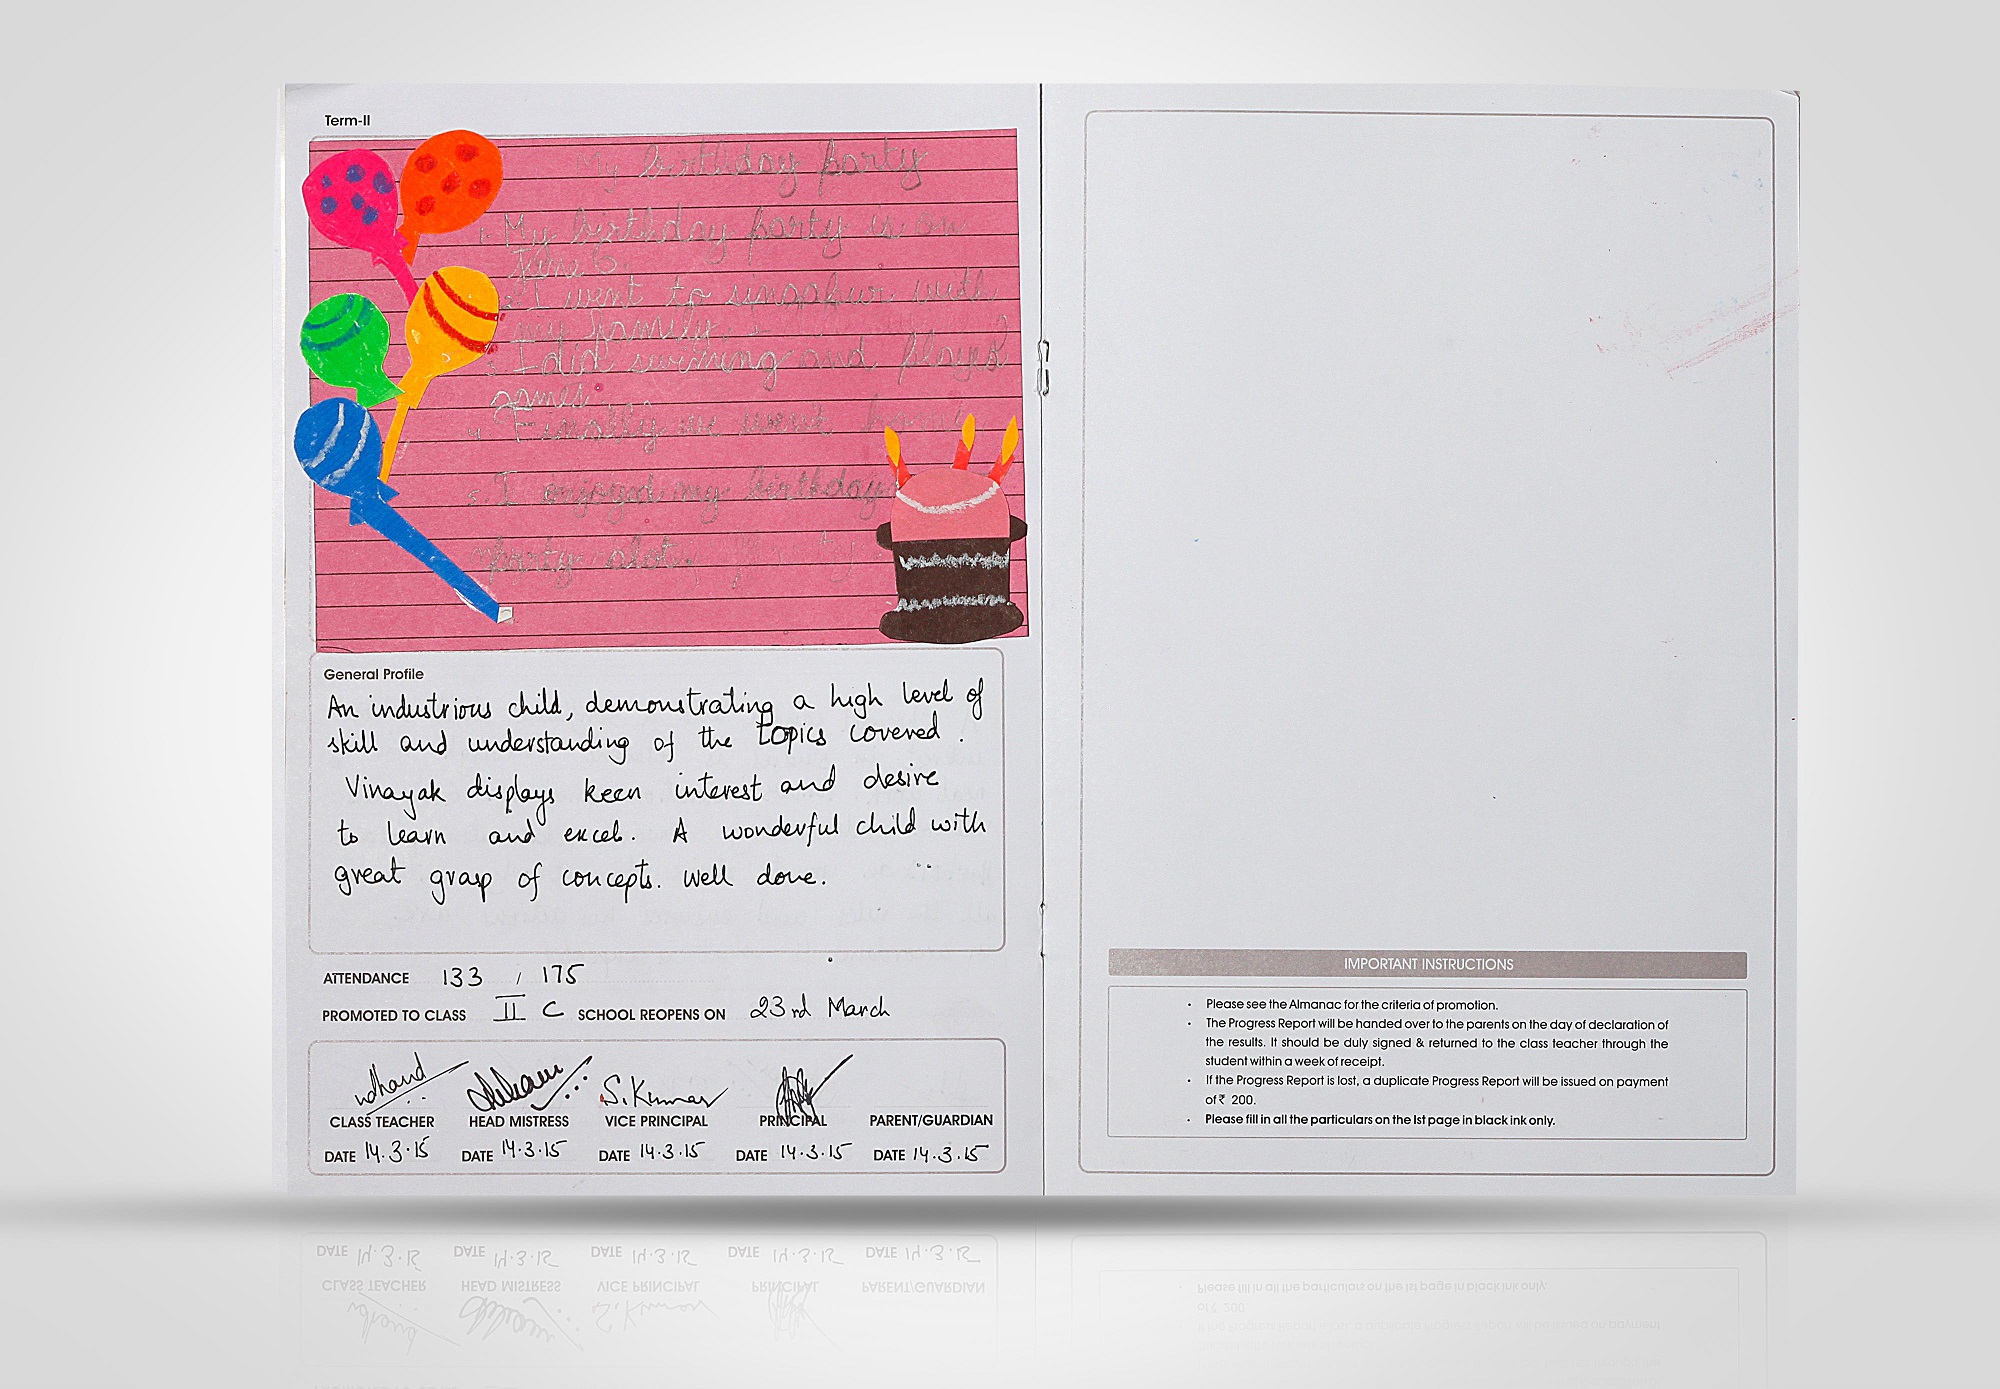 Term-II
My birthday party
1. My birthday party is on
June 6.
2. I went to singapur with
my family.
3. I did swiming and played
games.
4. Finally we went home
5. I enjoyed my birthday
party alot.
General Profile
An industrious child, demonstrating a high level of
skill and understanding of the topics covered.
Vinayak displays keen interest and desire
to learn and excel. A wonderful child with
great grasp of concepts. Well done.
ATTENDANCE 133 / 175
PROMOTED TO CLASS II C SCHOOL REOPENS ON 23rd March
S. Kumar
CLASS TEACHER HEAD MISTRESS VICE PRINCIPAL PRINCIPAL PARENT/GUARDIAN
DATE 14.3.15 DATE 14.3.15 DATE 14.3.15 DATE 14.3.15 DATE 14.3.15
IMPORTANT INSTRUCTIONS
• Please see the Almanac for the criteria of promotion.
• The Progress Report will be handed over to the parents on the day of declaration of
the results. It should be duly signed & returned to the class teacher through the
student within a week of receipt.
• If the Progress Report is lost, a duplicate Progress Report will be issued on payment
of ₹ 200.
• Please fill in all the particulars on the Ist page in black ink only.